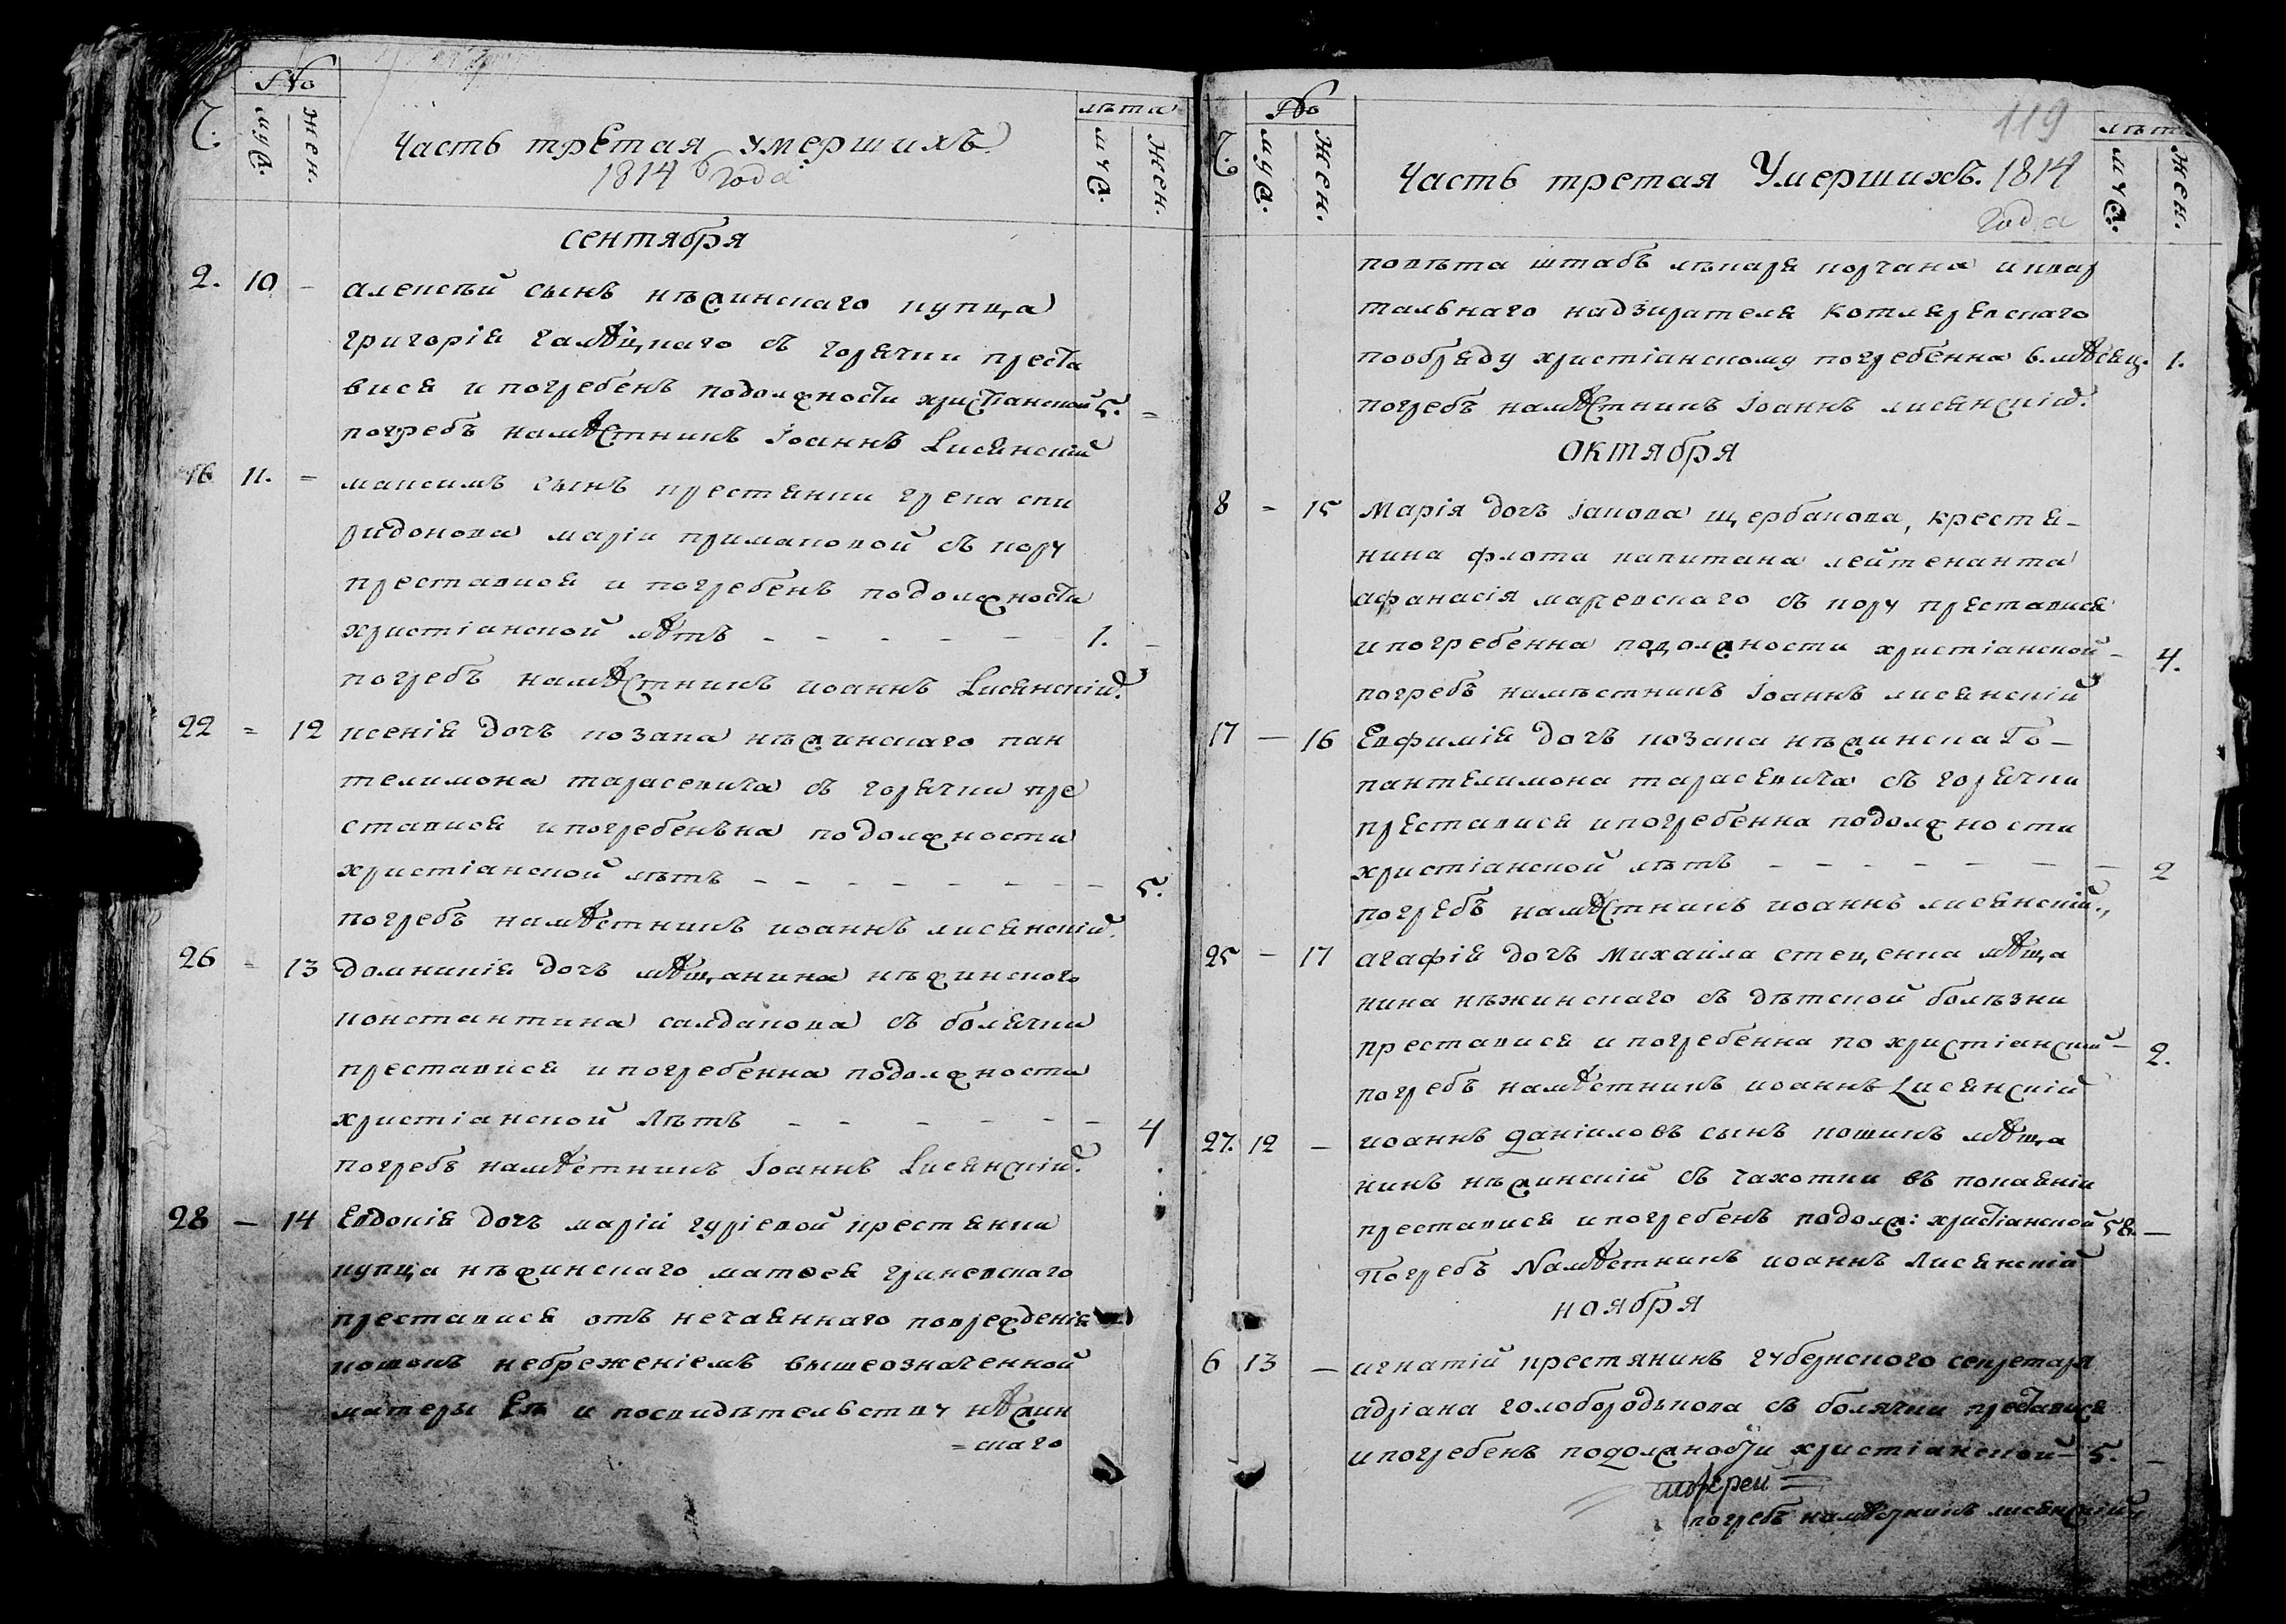 No
Ч. муж. жен.
Часть третая умершихъ.
1814 года
лѣта
муж. жен.
сентября
2. 10 - алексѣй сынъ нѣжинскаго купца
григорія галѣцкаго съ горячки преста
вися и погребенъ подолжности христіанской 5. =
погребъ намѣстникъ Іоаннъ Лисянскій
16 11. = максимъ сынъ крестянки грека спи
ридонова маріи примаковой съ кору
преставися и погребенъ подолжности
христіанской лѣтъ - - - - - - 1. -
погребъ намѣстникъ иоаннъ Лисянскій.
22 = 12 ксенія дочъ козака нѣжинскаго пан
телимона тарасевича съ горячки пре
ставися ипогребенъна подолжности
христіанской лѣтъ - - - - - - - - 5.
погребъ намѣстникъ иоаннъ лисянскій.
26 = 13 домникія дочъ мѣщанина нѣжинского
константина салдакова съ болячки
преставися ипогребенна подолжности
христіанской Лѣтъ - - - - - - 4
погребъ намѣстникъ Іоаннъ Лисянскій.
28 - 14 Евдокія дочъ марій гуріевой крестянки
купца нѣжинскаго матѳея гриневскаго
преставися отъ нечаяннаго поврежденія
кошокъ небреженіемъ вышеозначенной
матеры Еѣ и посвидѣтельству нѣжин
=скаго
No
Ч. муж. жен.
Часть третая Умершихъ. 1814
года
119
лѣта
муж. жен.
повѣта штабъ лѣкаря корчана иквар
тальнаго надзирателя Котляревскаго
пообряду христіанскому погребенна 6. мѣсяц. 1.
погребъ намѣстникъ Іоаннъ лисянскій.
октября
8 = 15 Марія дочъ Іакова щербакова, крестя-
нина флота капитана лейтенанта
афанасія маревскаго съ кору преставися
ипогребенна подолжности христіанской - 4.
погребъ намѣстникъ Іоаннъ лисянскій
17 — 16 Евфимія дочъ козака нѣжинскаго-
пантелимона тарасевича съ горячки
преставися ипогребенна подолжности
христіанской лѣтъ - - - - - - - - 2
погребъ намѣстникъ иоаннъ лисянскій.,
25 - 17 агафія дочъ Михаила стеценка мѣща
нина нѣжинскаго съ дѣтской болѣзни
преставися ипогребенна по христіанский - 2.
погребъ намѣстникъ иоаннъ Лисянскій
27. 12 - иоаннъ даніиловъ сынъ кошикъ мѣща
нинъ нѣжинскій съ чахотки въ покаяніи
преставися ипогребенъ подолж: христіанской 58. —
Погребъ Намѣстникъ иоаннъ Лисянскій
ноября
6 13 - игнатій крестянинъ губернского секретаря
адріана голобородькова съ болячки преставися
ипогребенъ подолжности христіанской - 5. -
погребъ намѣстникъ лисянскій.